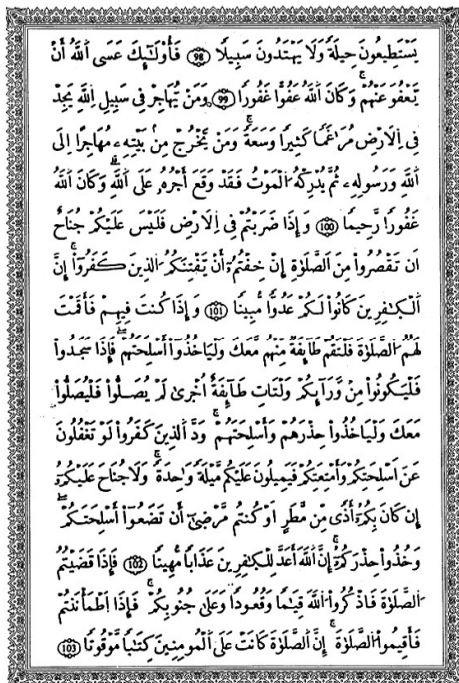 يَسْتَطِيعُونَ حِيلَةً وَلَا يَهْتَدُونَ سَبِيلًا ۝98 فَأُوْلَٰٓئِكَ عَسَى اَللَّهُ أَنْ
يَّعْفُوَ عَنْهُمْ وَكَانَ اَللَّهُ عَفُوًّا غَفُورًا ۝99 وَمَنْ يُّهَاجِرْ فِى سِبِيلِ اِللَّهِ يَجِدْ
فِى اِلَارْضِ مُرَاغَمًا كَثِيرًا وَسَعَةً وَمَنْ يَّخْرُجْ مِنۢ بَيْتِهِۦ مُهَاجِرًا اِلَى
اَللَّهِ وَرَسُولِهِۦ ثُمَّ يُدْرِكْهُ اُلْمَوْتُ فَقَدْ وَقَعَ أَجْرُهُۥ عَلَى اَللَّهِ وَكَانَ اَللَّهُ
غَفُورًا رَّحِيمًا ۝100 وَإِذَا ضَرَبْتُمْ فِى اِلَارْضِ فَلَيْسَ عَلَيْكُمْ جُنَاحٌ
اَن تَقْصُرُواْ مِنَ اَلصَّلَوٰةِ إِنْ خِفْتُمُۥٓ أَنْ يَّفْتِنَكُمُ اُلذِينَ كَفَرُوٓاْ إِنَّ
اَلْكَٰفِرِينَ كَانُواْ لَكُمْ عَدُوًّا مُّبِينًا ۝101 وَإِذَا كُنتَ فِيهِمْ فَأَقَمْتَ
لَهُمُ اُلصَّلَوٰةَ فَلْتَقُمْ طَآئِفَةٌ مِّنْهُم مَّعَكَ وَلْيَاخُذُوٓاْ أَسْلِحَتَهُمْ فَإِذَا سَجَدُواْ
فَلْيَكُونُواْ مِنْ وَّرَآئِكُمْ وَلْتَاتِ طَآئِفَةٌ اُخْرَىٰ لَمْ يُصَلُّواْ فَلْيُصَلُّواْ
مَعَكَ وَلْيَاخُذُواْ حِذْرَهُمْ وَأَسْلِحَتَهُمْ وَدَّ اَلذِينَ كَفَرُواْ لَوْ تَغْفُلُونَ
عَنَ اَسْلِحَتِكُمْ وَأَمْتِعَتِكُمْ فَيَمِيلُونَ عَلَيْكُم مَّيْلَةً وَٰحِدَةً وَلَا جُنَاحَ عَلَيْكُمُۥٓ
إِن كَانَ بِكُمُۥٓ أَذًى مِّن مَّطَرٍ اَوْ كُنتُم مَّرْضَىٰٓ أَن تَضَعُوٓاْ أَسْلِحَتَكُمْ
وَخُذُواْ حِذْرَكُمُۥٓ إِنَّ اَللَّهَ أَعَدَّ لِلْكَٰفِرِينَ عَذَابًا مُّهِينًا ۝102 فَإِذَا قَضَيْتُمُ
اُلصَّلَوٰةَ فَاذْكُرُواْ اُللَّهَ قِيَٰمًا وَقُعُودًا وَعَلَىٰ جُنُوبِكُمْ فَإِذَا اَطْمَأْنَنتُمْ
فَأَقِيمُواْ اُلصَّلَوٰةَ إِنَّ اَلصَّلَوٰةَ كَانَتْ عَلَى اَلْمُومِنِينَ كِتَٰبًا مَّوْقُوتًا ۝103